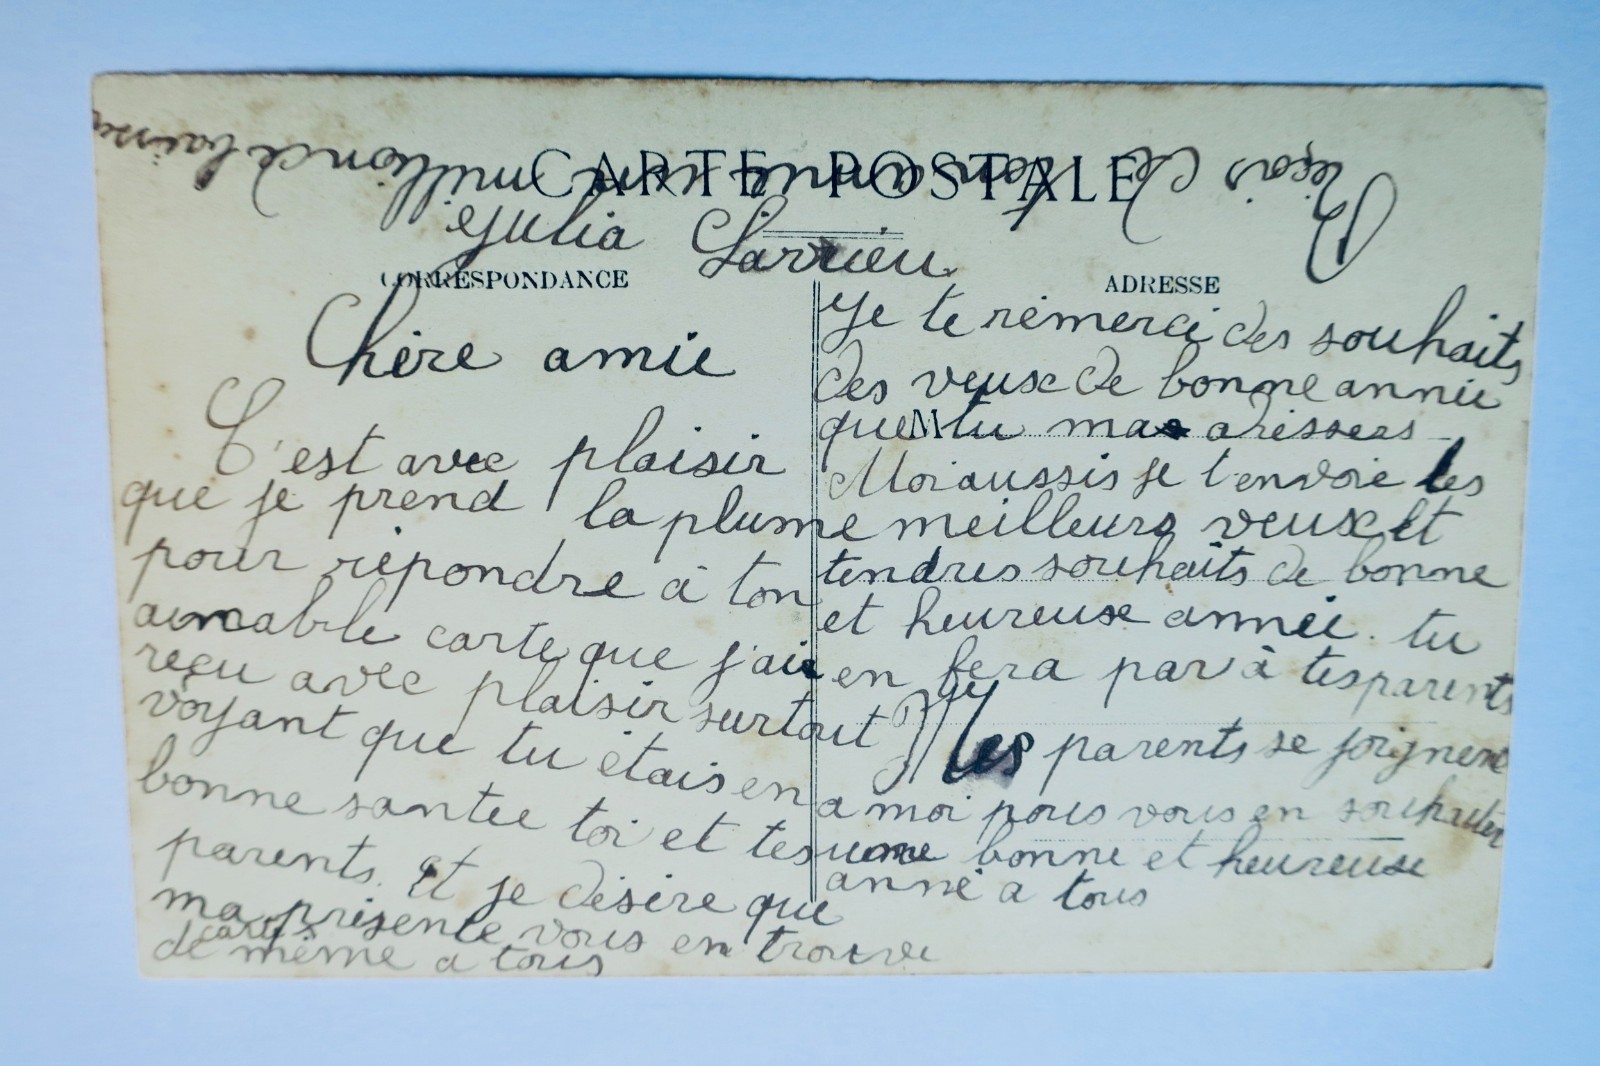 CARTE POSTALE
CORRESPONDANCE
ADRESSE
Chère amie
C'est avec plaisir
que je prend la plume
pour répondre à ton
aimable carte que j'ai
reçu avec plaisir surtout
voyant que tu étais en
bonne santee toi et tes
parents. Et je désire que
ma carte présente vous en trouve
de même a tous
Je te rémerci des souhaits
des veux de bonne année
que M tu mas adressers
Moi aussis je t'envoie les
meilleurs veux et
tendres souhaits de bonne
et heureuse année. tu
en fera par à tes parents
Mes parents se joignent
a moi pous vous en souhaiter
une bonne et heureuse
anné a tous
Reçois de ton amie un million de
Julia Larrieu